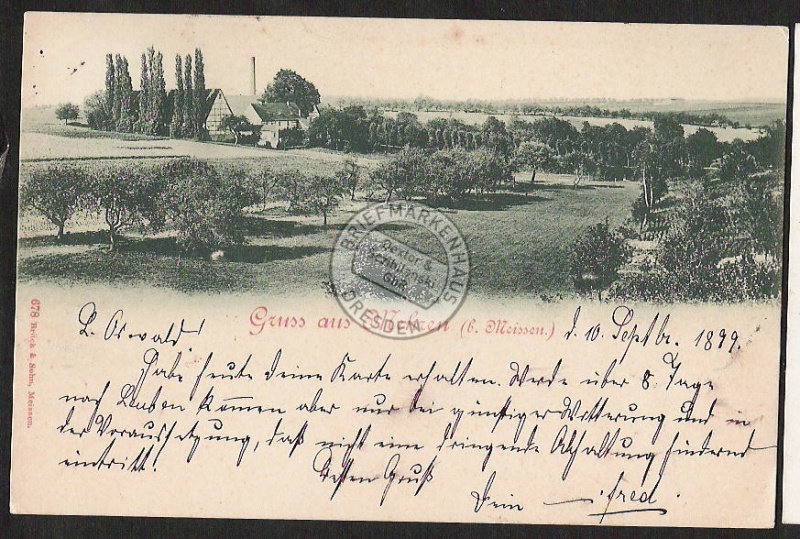 BRIEFMARKENHAUS
Dexter &
GbR
DRESDEN
Gruss aus (b. Meissen.)
678 Brück & Sohn, Meissen.
L. Oswald! d. 10. Septbr. 1899.
Habe heute deine Karte erhalten. Werde über 8. Tage
nach Leuben kommen aber nur bei günstiger Witterung und in
der Voraussetzung, daß nicht eine dringende Abhaltung hindernd
eintritt!
Besten Gruß
Dein Fred.